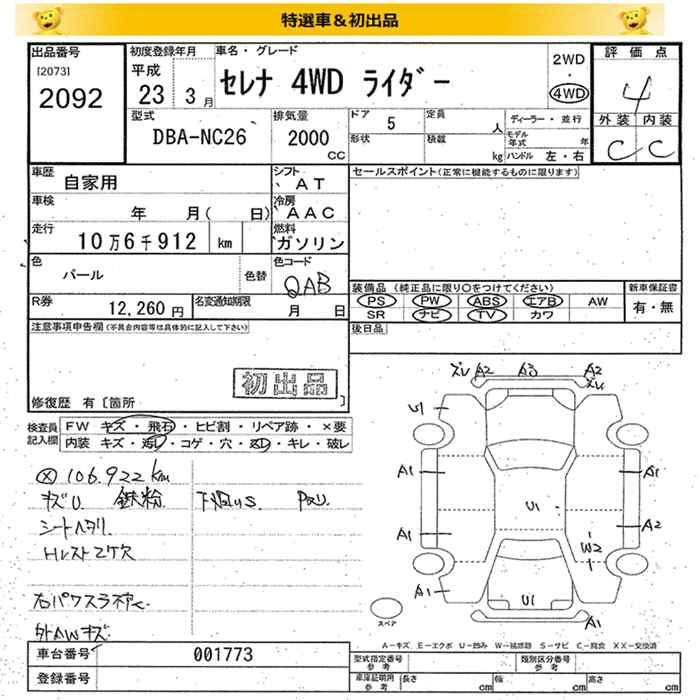 特選車＆初出品
出品番号
[2073]
2092
初度登録年月
平成
23 3月
車名・グレード
セレナ 4WD ライダー
2WD
・
4WD
評価点
4
外装 内装
C C
型式
DBA-NC26
排気量
2000
CC
ドア
5
定員
人
形状
積載
kg
ディーラー・並行
モデル年式
年
ハンドル 左・右
車歴
自家用
シフト
AT
車検
年 月( 日)
冷房
AAC
走行
10万6千912 km
燃料
ガソリン
色
パール
色替
色コード
QAB
R券
12,260円
名変通知期限
月 日
セールスポイント(正常に機能するものに限ります)
装備品 (純正品に限り〇をつけてください)
PS PW ABS エアB AW
SR ナビ TV カワ
新車保証書
有・無
後日品
注意事項申告欄(不具合内容等は具体的に記入して下さい)
初出品
修復歴 有 [箇所 ]
検査員
記入欄
FW キズ・飛石・ヒビ割・リペア跡・×要
内装 キズ・汚レ・コゲ・穴・凹・キレ・破レ
106.922 km
キズU. 鉄粉 下廻りUS
シートヘタリ
右パワスラ不
外AWキズ
A2 A3 A2
U1
A1 A1
U1
A1 A2
W2
A1 U1 A1
スペア
A－キズ E－エクボ U－凹み W－補修跡 S－サビ C－腐食 XX－交換済
車台番号
001773
登録番号
型式指定番号
参考
類別区分番号
参考
車庫証明用
参考
長さ cm 幅 cm 高さ cm